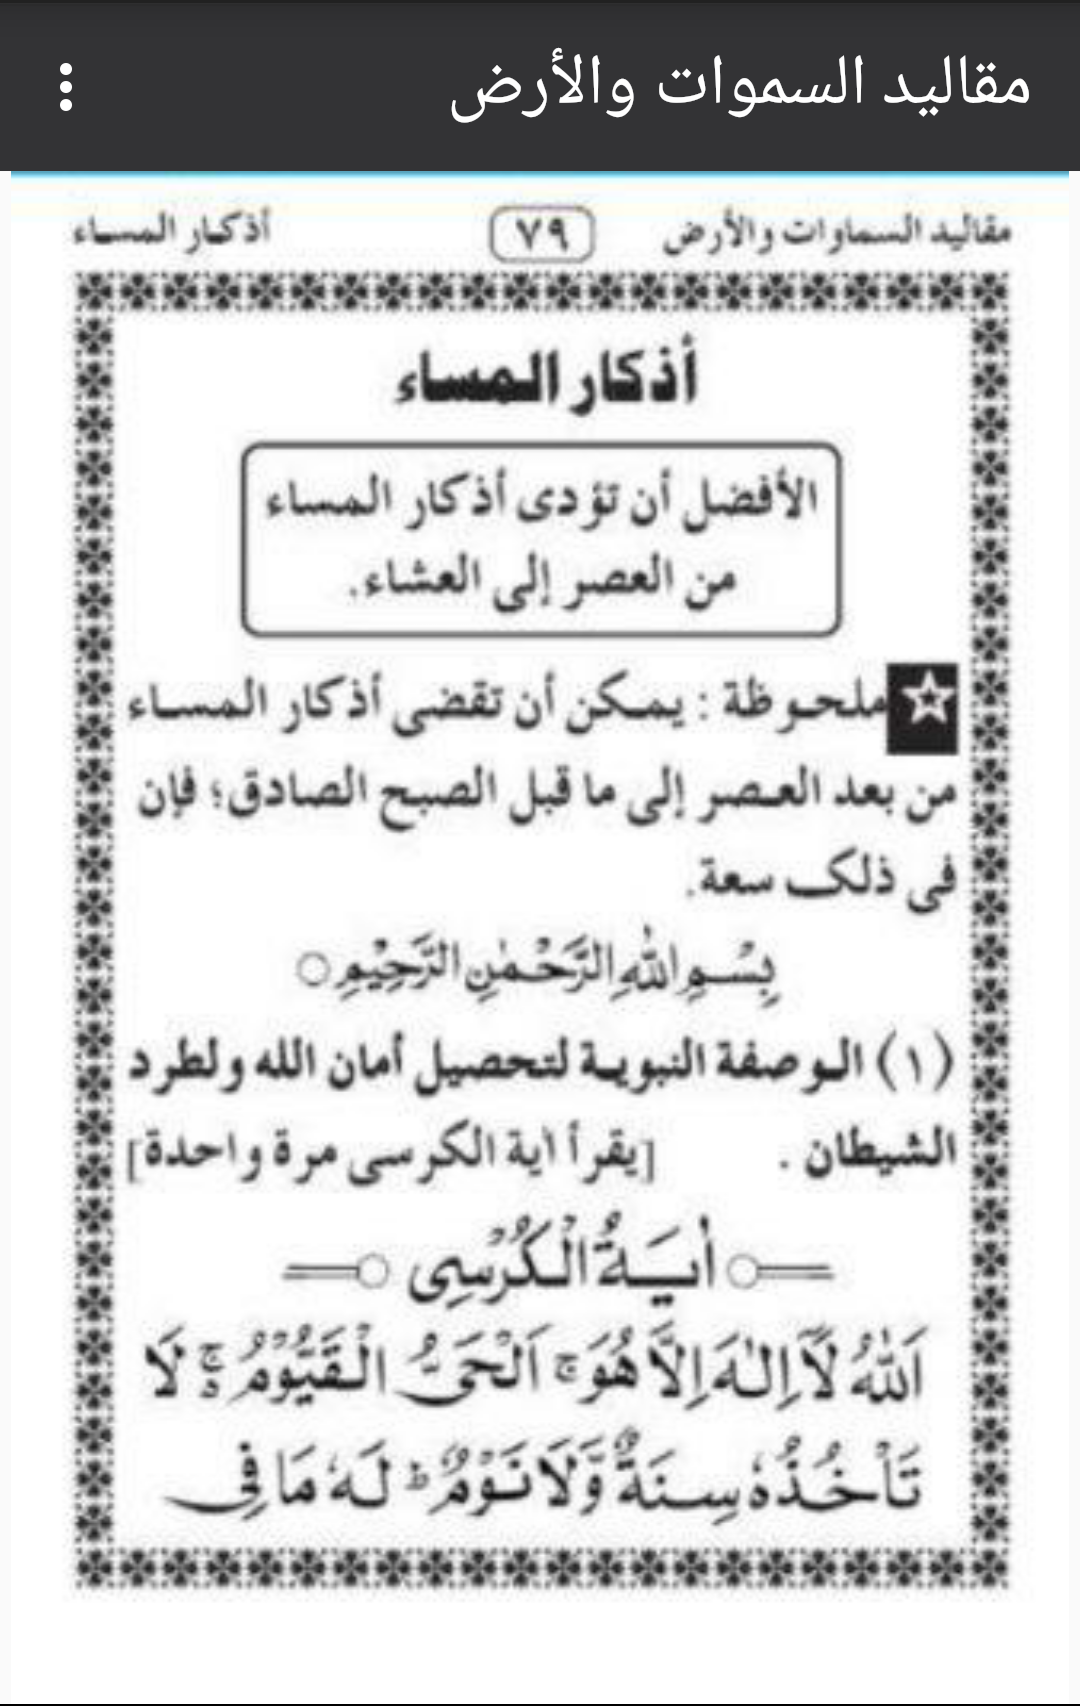 مقاليد السموات والأرض
مقاليد السماوات والأرض ٧٩ أذكار المساء
أذكار المساء
الأفضل أن تؤدى أذكار المساء
من العصر إلى العشاء.
ملحوظة : يمكن أن تقضى أذكار المساء
من بعد العصر إلى ما قبل الصبح الصادق؛ فإن
فى ذلک سعة.
بِسْمِ اللهِ الرَّحْمٰنِ الرَّحِيْمِ
(١) الوصفة النبوية لتحصيل أمان الله ولطرد
الشيطان . [يقرأ اٰية الكرسى مرة واحدة]
اٰيَةُ الْكُرْسِى
اَللّٰهُ لَآ اِلٰهَ اِلَّا هُوَ ۚ اَلْحَىُّ الْقَيُّوْمُ ۚ لَا
تَاْخُذُهٗ سِنَةٌ وَّلَا نَوْمٌ ؕ لَهٗ مَا فِى